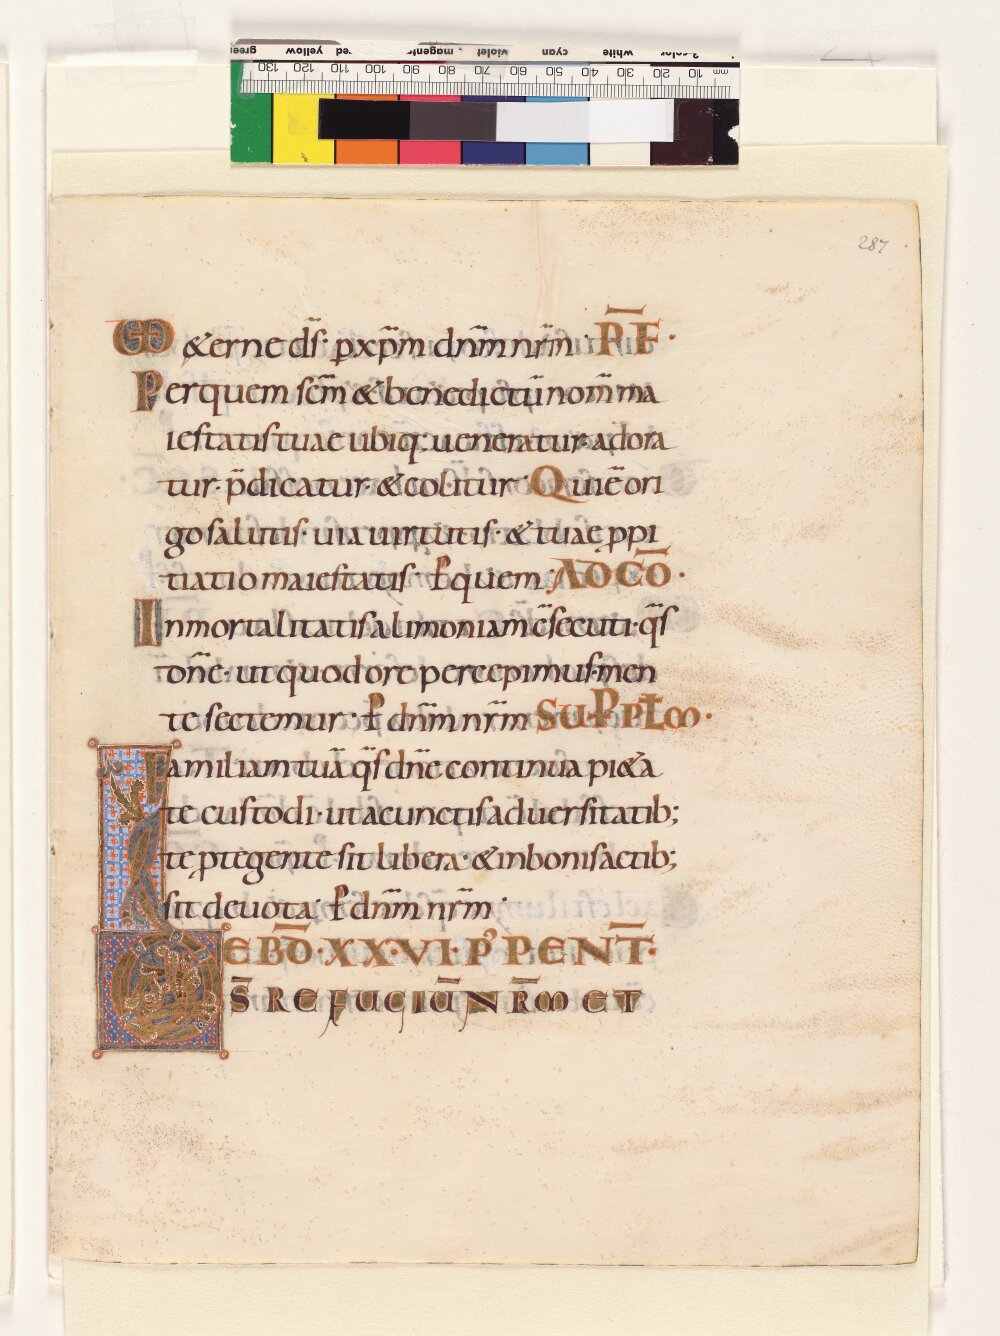 287
&erne ds̄· p̱xp̄m dnm̄ nrm̄· P̄F·
Perquem scm̄ & benedictū nom̄ ma
iestatis tuae ubiq; ueneratur adora
tur· p̄dicatur· & colitur· Qui ē ori
go salutis· uia uirtutis· & tuae ppi
tiatio maiestatis· P quem· AD CŌ·
Inmortalitatis alimoniam c̄secuti· qs̄
dne̅· ut quod ore percepimus· men
te sectemur· P dnm̄ nrm̄ SUP PPLM·
Familiam tuā qs̄ dne̅ continua pi&a
te custodi· ut a cunctis aduersitatib;
te ptegente sit libera· & in bonis actib;
sit deuota· P dnm̄ nrm̄·
EBD̄· XXVI· P' PENT̄·
DS̄ REFUGIŪ NR̄M ET